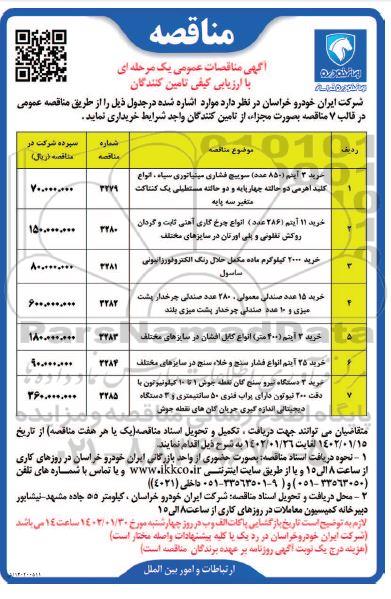 مناقصه
ایران خودرو
ایران خودرو خراسان
آگهی مناقصات عمومی یک مرحله ای
با ارزیابی کیفی تامین کنندگان
شرکت ایران خودرو خراسان در نظر دارد موارد اشاره شده درجدول ذیل را از طریق مناقصه عمومی
در قالب ۷ مناقصه بصورت مجزاء، از تامین کنندگان واجد شرایط خریداری نماید .
ردیف موضوع مناقصه شماره مناقصه سپرده شرکت در مناقصه (ریال)
۱ خرید ۳ آیتم (۸۵۰ عدد) سوییچ فشاری مینیاتوری سیاه ، انواع
کلید اهرمی دو حالته چهارپایه و دو حالته مستطیلی یک کنتاکت
متغیر سه پایه
۳۲۷۹ ۷۰.۰۰۰.۰۰۰
۲ خرید ۱۱ آیتم (۲۸۶ عدد ) انواع چرخ گاری آهنی ثابت و گردان
روکش تفلونی و پلی اورتان در سایزهای مختلف
۳۲۸۰ ۱۵۰.۰۰۰.۰۰۰
۳ خرید ۲۰۰۰ کیلوگرم ماده مکمل حلال رنگ الکتروفورزانیونی
ساسول
۳۲۸۱ ۸۰.۰۰۰.۰۰۰
۴ خرید ۱۵ عدد صندلی معمولی ، ۲۸۰ عدد صندلی چرخدار پشت
میزی و ۱۰ عدد صندلی چرخدار پشت میزی بلند
۳۲۸۲ ۶۰۰.۰۰۰.۰۰۰
۵ خرید ۳ آیتم (۴۰۰ متر) انواع کابل افشان در سایزهای مختلف ۳۲۸۳ ۱۸۰.۰۰۰.۰۰۰
۶ خرید ۲۵ آیتم انواع فشار سنج و خلاء سنج در سایزهای مختلف ۳۲۸۴ ۹۰.۰۰۰.۰۰۰
۷ خرید ۳ دستگاه نیرو سنج گان نقطه جوش ۱ تا ۱۰ کیلونیوتون با
دقت ۲۰۰ نیوتون دارای پراب فنری ۵۰ سانتیمتری و ۳ دستگاه
دیجیتالی اندازه گیری جریان گان های نقطه جوش
۳۲۸۵ ۳۶۰.۰۰۰.۰۰۰
متقاضیان می توانند جهت دریافت ، تکمیل و تحویل اسناد مناقصه(یک یا هر هفت مناقصه) از تاریخ
۱۴۰۲/۰۱/۱۵ لغایت ۱۴۰۲/۰۱/۲۶ به شرح ذیل اقدام نمایند.
۱ - نحوه دریافت اسناد مناقصه: بصورت حضوری از واحد بازرگانی ایران خودرو خراسان در روزهای کاری
از ساعت ۸ الی ۱۵ و یا از طریق سایت اینترنتی www.ikkco.ir و یا تماس با شماره های تلفن
(۳۳۵۶۳۰۵۰ -۰۵۱) و (۹ - ۳۳۵۶۳۵۰۱-۰۵۱ داخلی (۴۰۲۱))
۲ - محل دریافت و تحویل اسناد مناقصه: شرکت ایران خودرو خراسان ، کیلومتر ۵۵ جاده مشهد-نیشابور
دبیرخانه کمیسیون معاملات در روزهای کاری از ساعت ۸ الی ۱۵
لازم به توضیح است تاریخ بازگشایی پاکات الف و ب در روز چهارشنبه مورخ ۱۴۰۲/۰۱/۳۰ ساعت ۱۴ می باشد
(شرکت ایران خودروخراسان در رد یک یا کلیه پیشنهادات واصله مختار است)
(هزینه درج یک نوبت آگهی روزنامه بر عهده برندگان مناقصه است)
ارتباطات و امور بین الملل